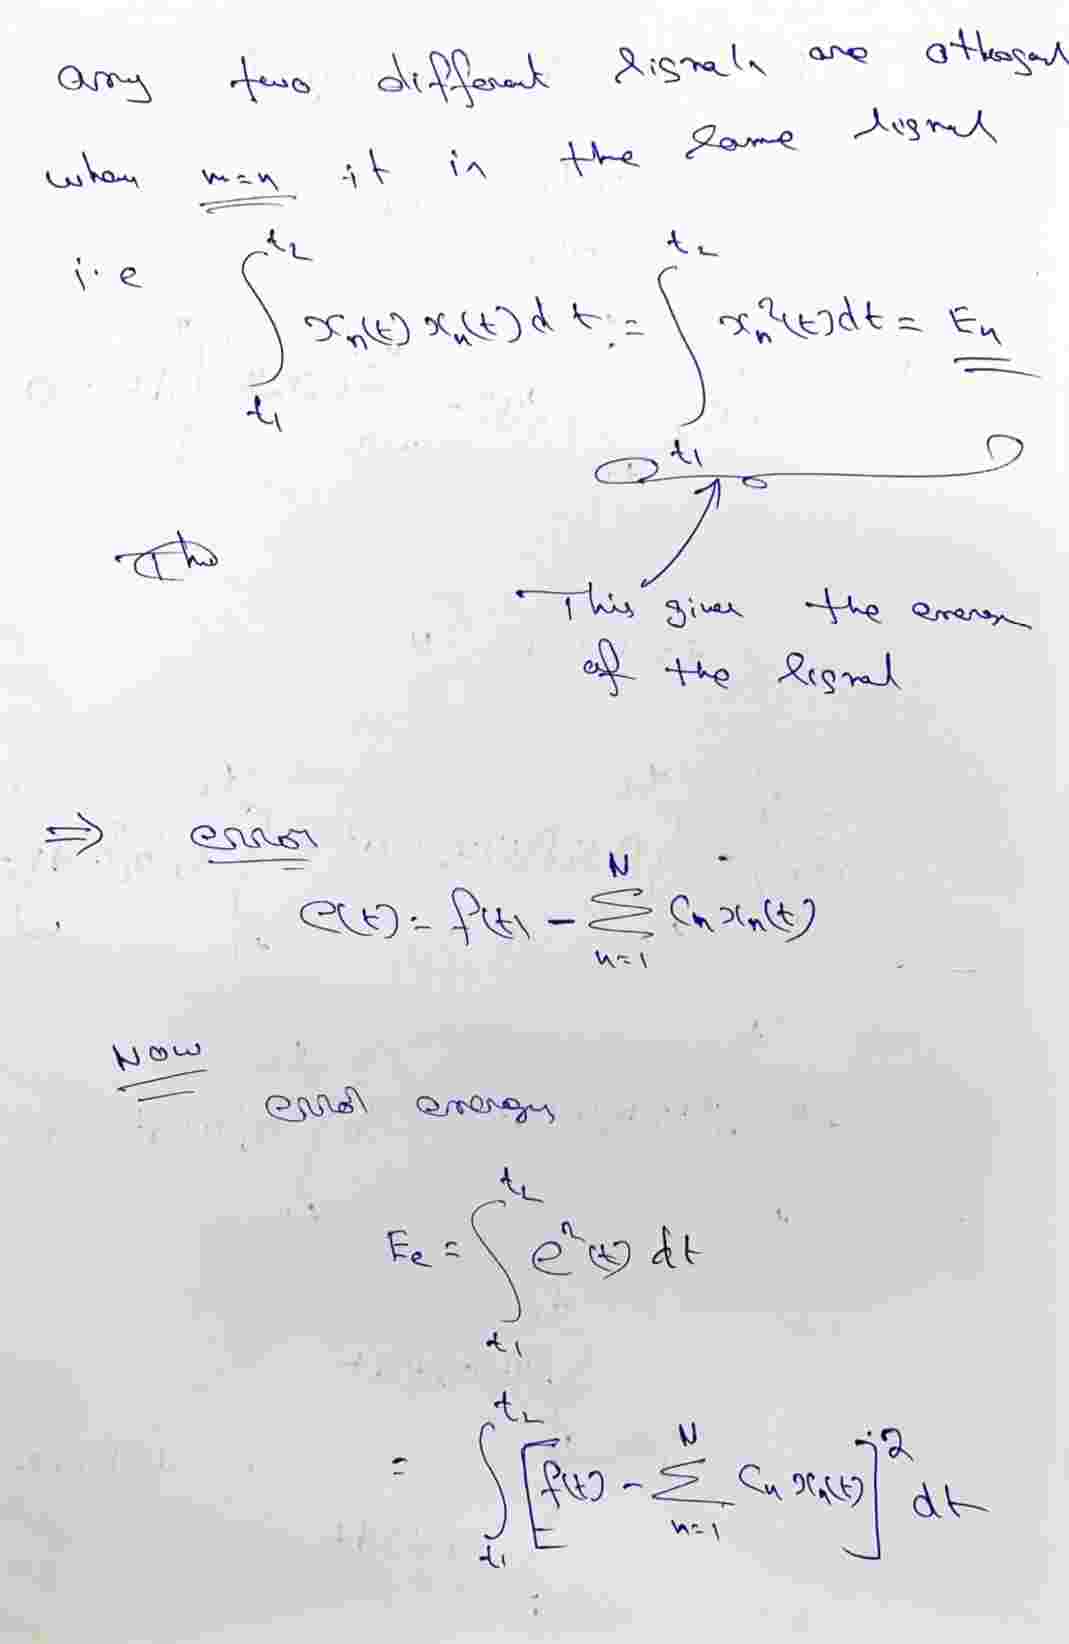 any two different signals are othogonal
when m=n it is the same signal
i.e ∫_{t1}^{t2} x_n(t) x_n(t) dt = ∫_{t1}^{t2} x_n²(t) dt = E_n
This gives the energy
of the signal
⇒ error
e(t) = f(t) - ∑_{n=1}^{N} C_n x_n(t)
NOW
error energy
E_e = ∫_{t1}^{t2} e²(t) dt
= ∫_{t1}^{t2} [f(t) - ∑_{n=1}^{N} C_n x_n(t)]² dt